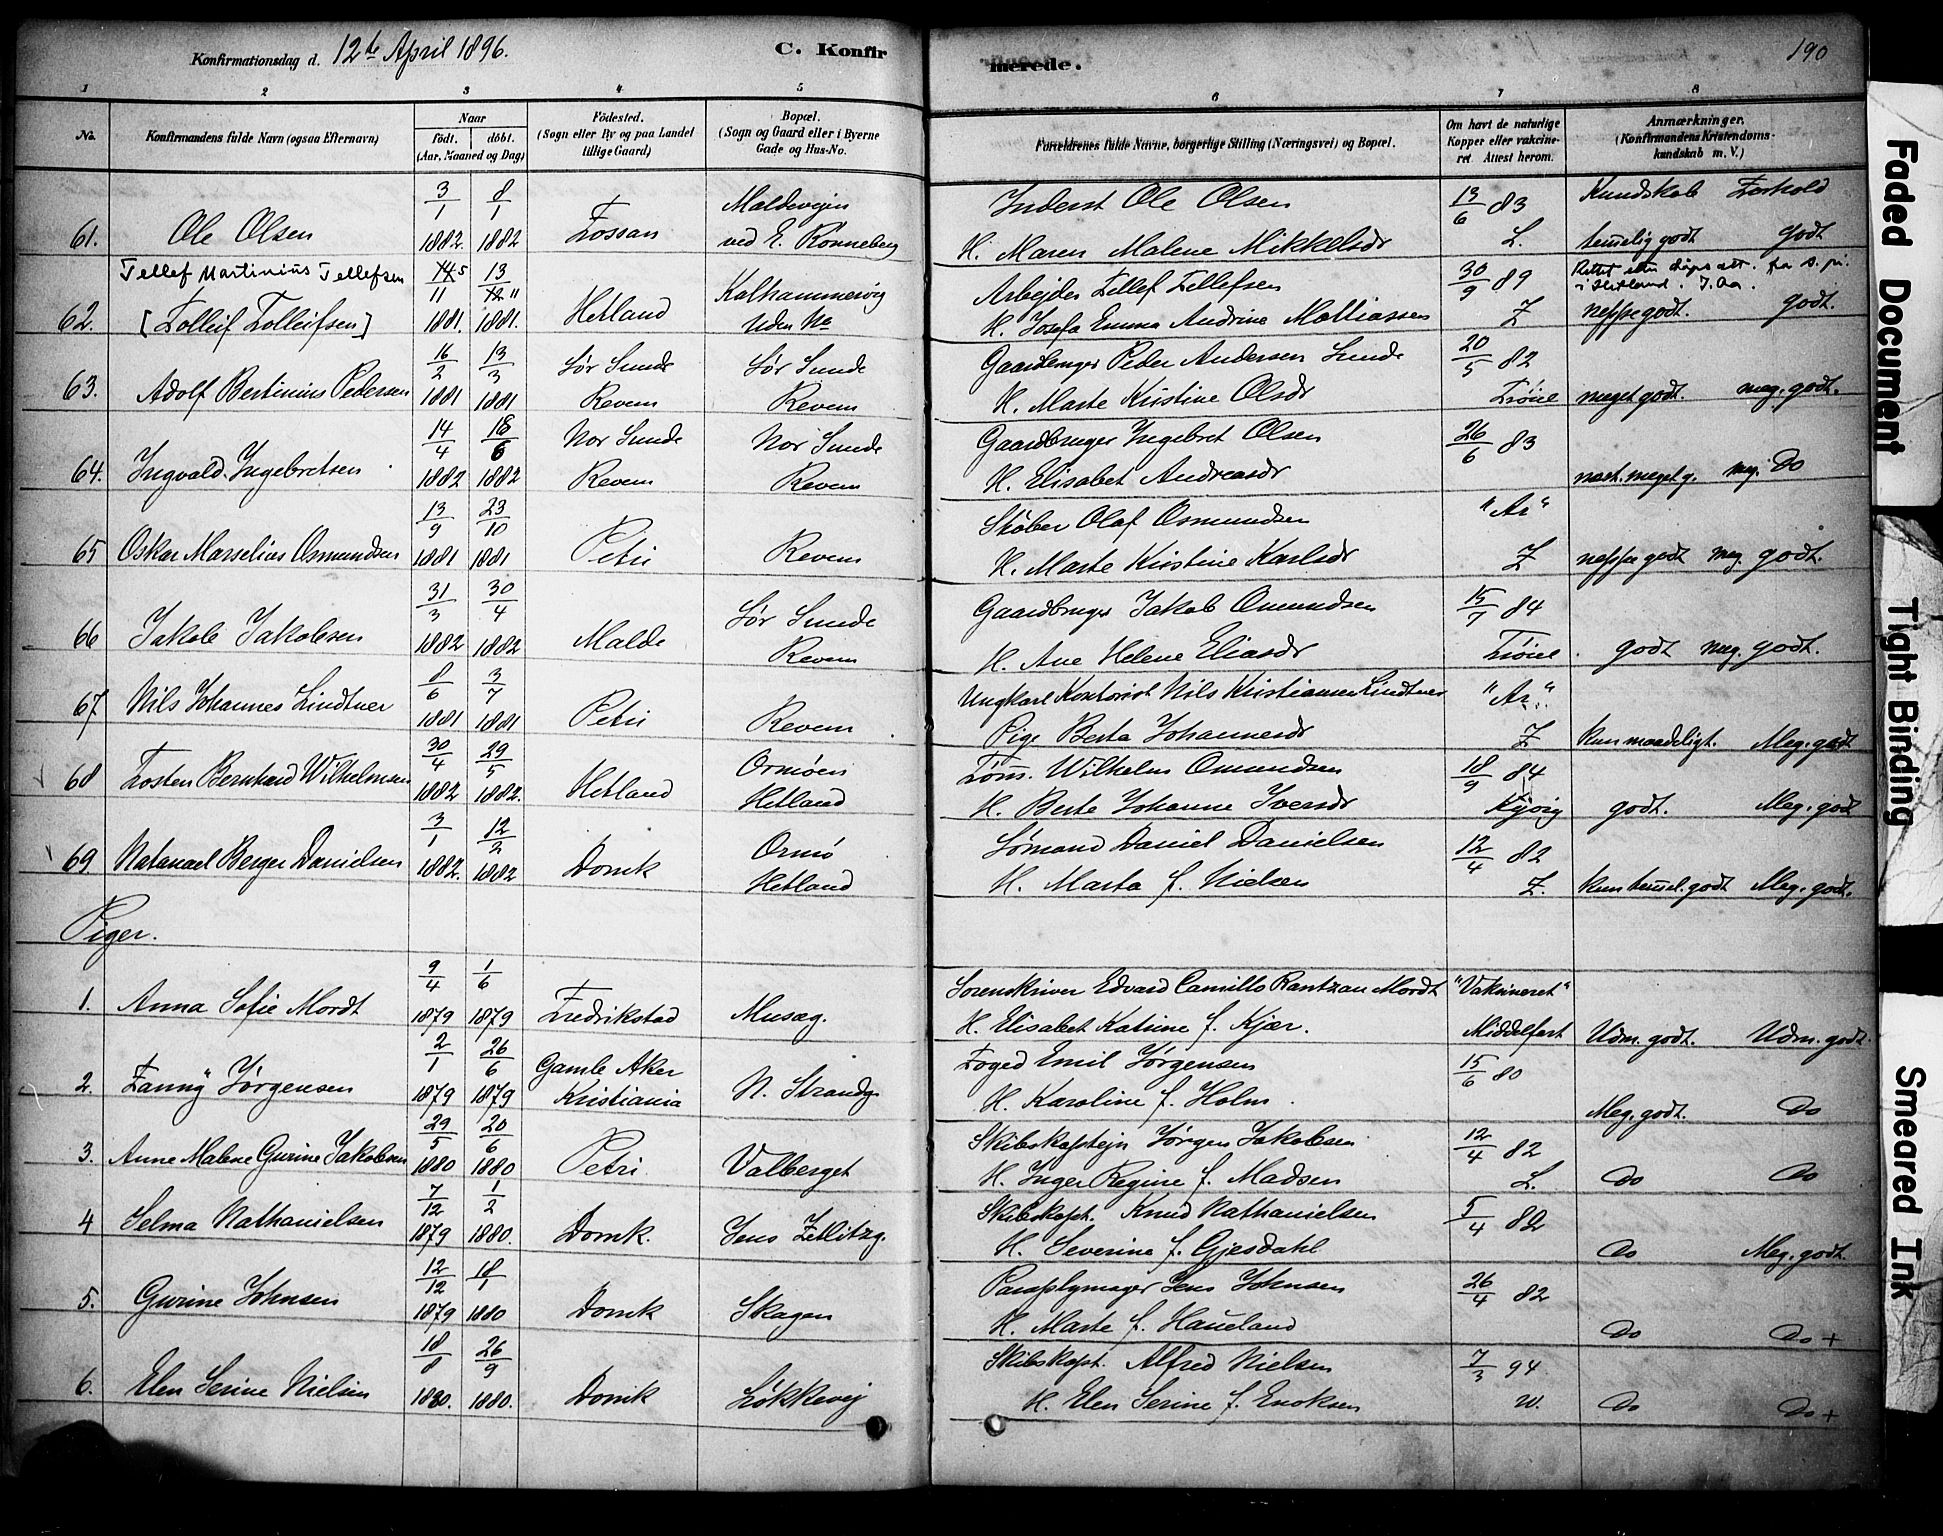 Konfirmationsdag d. 12te April 1896.
C. Konfirmerede.
190
1 2 3 4 5 6 7 8
No.
Konfirmandens fulde Navn (ogsaa Efternavn)
Naar
født. døbt.
(Aar, Maaned og Dag)
Fødested.
(Sogn eller By og paa Landet
tillige Gaard)
Bopæl.
(Sogn og Gaard eller i Byerne
Gade og Hus-No.
Forældrenes fulde Navne, borgerlige Stilling (Næringsvei) og Bopæl.
Om havt de naturlige
Kopper eller vakcine-
ret Attest herom.
Anmærkninger.
(Konfirmandens Kristendoms-
kundskab m. V.)
Kundskab Forhold
61. Ole Olsen 3/1 1882. 8/1 1882 Fossan Maldeveien ved E. Rønneberg
Inderst Ole Olsen
H. Maren Malene Mikkelsdr 13/6 83 L. temmelig godt godt
Tellef Martinius Tellefsen
62. [Tolleif Tolleifsen] 5/11 1881. 13/11 1881. Hetland Kalhammervig Uden No
Arbejder Tellef Tellefsen
H. Josefa Emma Andrine Mattiassen 30/9 89 Z neppe godt. godt.
63. Adolf Bertinius Pedersen 16/2 1881 13/3 1881 Sør Sunde Revem Sør Sunde Revem
Gaardbruger Peder Andersen Sunde
H. Marte Kristine Olsdr 20/5 82 Trøiel meget godt. meg. godt.
64. Ingvald Ingebretsen 14/4 1882 18/6 1882 Nor Sunde Revem Nor Sunde Revem
Gaardbruger Ingebret Olsen
H. Elisabet Andreasdr 26/6 83 næst. meget g. meg. Do
65 Oskar Marselius Osmundsen 13/9 1881 23/10 1881 Petri Revem
Støber Olaf Osmundsen
H. Marte Kristine Karlsdr "Ar" Z neppe godt meg. godt.
66 Jakob Jakobsen 31/3 1882 30/4 1882 Malde Sør Sunde Revem
Gaardbruger Jakob Omundsen
H. Ane Helene Eliasdr 15/7 84 Trøiel. godt meg. godt.
67 Nils Johannes Lindtner 8/6 1881 3/7 1881 Petri Revem
Ungkarl Kontorist Nils Kristiansen Lindtner
Pige Berta Johannesdr "Ar." Z kun maadeligt. Meg. godt
68 Tosten Bernhard Wilhelmsen 30/4 1882 29/5 1882. Hetland Ormøen Hetland
Tøm. Wilhelm Omundsen
H. Berte Johanne Iversdr 18/9 84 godt. Meg. godt
69. Natanael Berger Danielsen 3/1 1882. 12/2 1882 Domk Ormø Hetland
Sømand Daniel Danielsen
H. Marta f. Nielsen 12/4 82 Z. kun temmel. godt Meg. godt.
Piger.
1. Anna Sofie Mordt 9/4 1879 1/6 1879 Fredrikstad Musæg.
Sorenskriver Edvard Camillo Rantzau Mordt
H. Elisabet Katrine f. Kjær. "Vaksineret" Middelfart Udm. godt. Udm. godt.
2. Fanny Jørgensen 2/1 1879 26/6 1879 Gamle Aker Kristiania N. Strandg
Foged Emil Jørgensen
H. Karoline f. Holm. 15/6 80 Meg. godt. Do
3. Anne Malene Gurine Jakobsen 29/5 1880 20/6 1880 Petri. Valberget
Skibskaptejn Jørgen Jakobsen
H. Inger Regine f. Madsen 12/4 82 L. Do Do
4 Selma Nathanielsen 7/12 1879 1/2 1880. Domk. Jens Zetlitzg.
Skibskapt. Knud Nathanielsen
H. Severine f. Gjesdahl 5/4 82 Do Meg. godt.
5. Gurine Johnsen 12/12 1879 18/1 1880 Domk Skagen
Paraplymager Jens Johnsen
H. Marte f. Haueland 26/4 82 Do Do +
6. Elen Serine Nielsen 18/8 1880. 26/9 1880. Domk Løkkevej
Skibskapt. Alfred Nielsen
H. Elen Serine f. Enoksen 7/3 94 W. Do Do +
Faded Document
Tight Binding
Smeared Ink